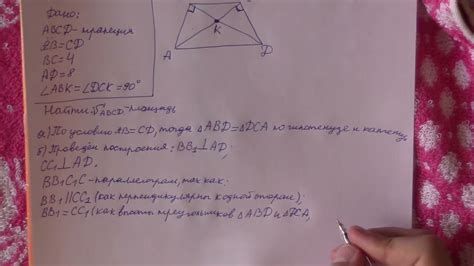 Дано:
ABCD - трапеция
AB=CD
BC=4
AD=8
∠ABK=∠DCK=90°
K
A
D
Найти: S ABCD - площадь
а) По условию AB=CD, тогда △ABD=△DCA по гипотенузе и катету.
б) Проведём построения: BB₁⊥AD;
CC₁⊥AD.
BB₁C₁C - параллелограм, так как:
BB₁∥CC₁ (как перпендикуляры к одной стороне);
BB₁=CC₁ (как высоты треугольников △ABD и △DCA,